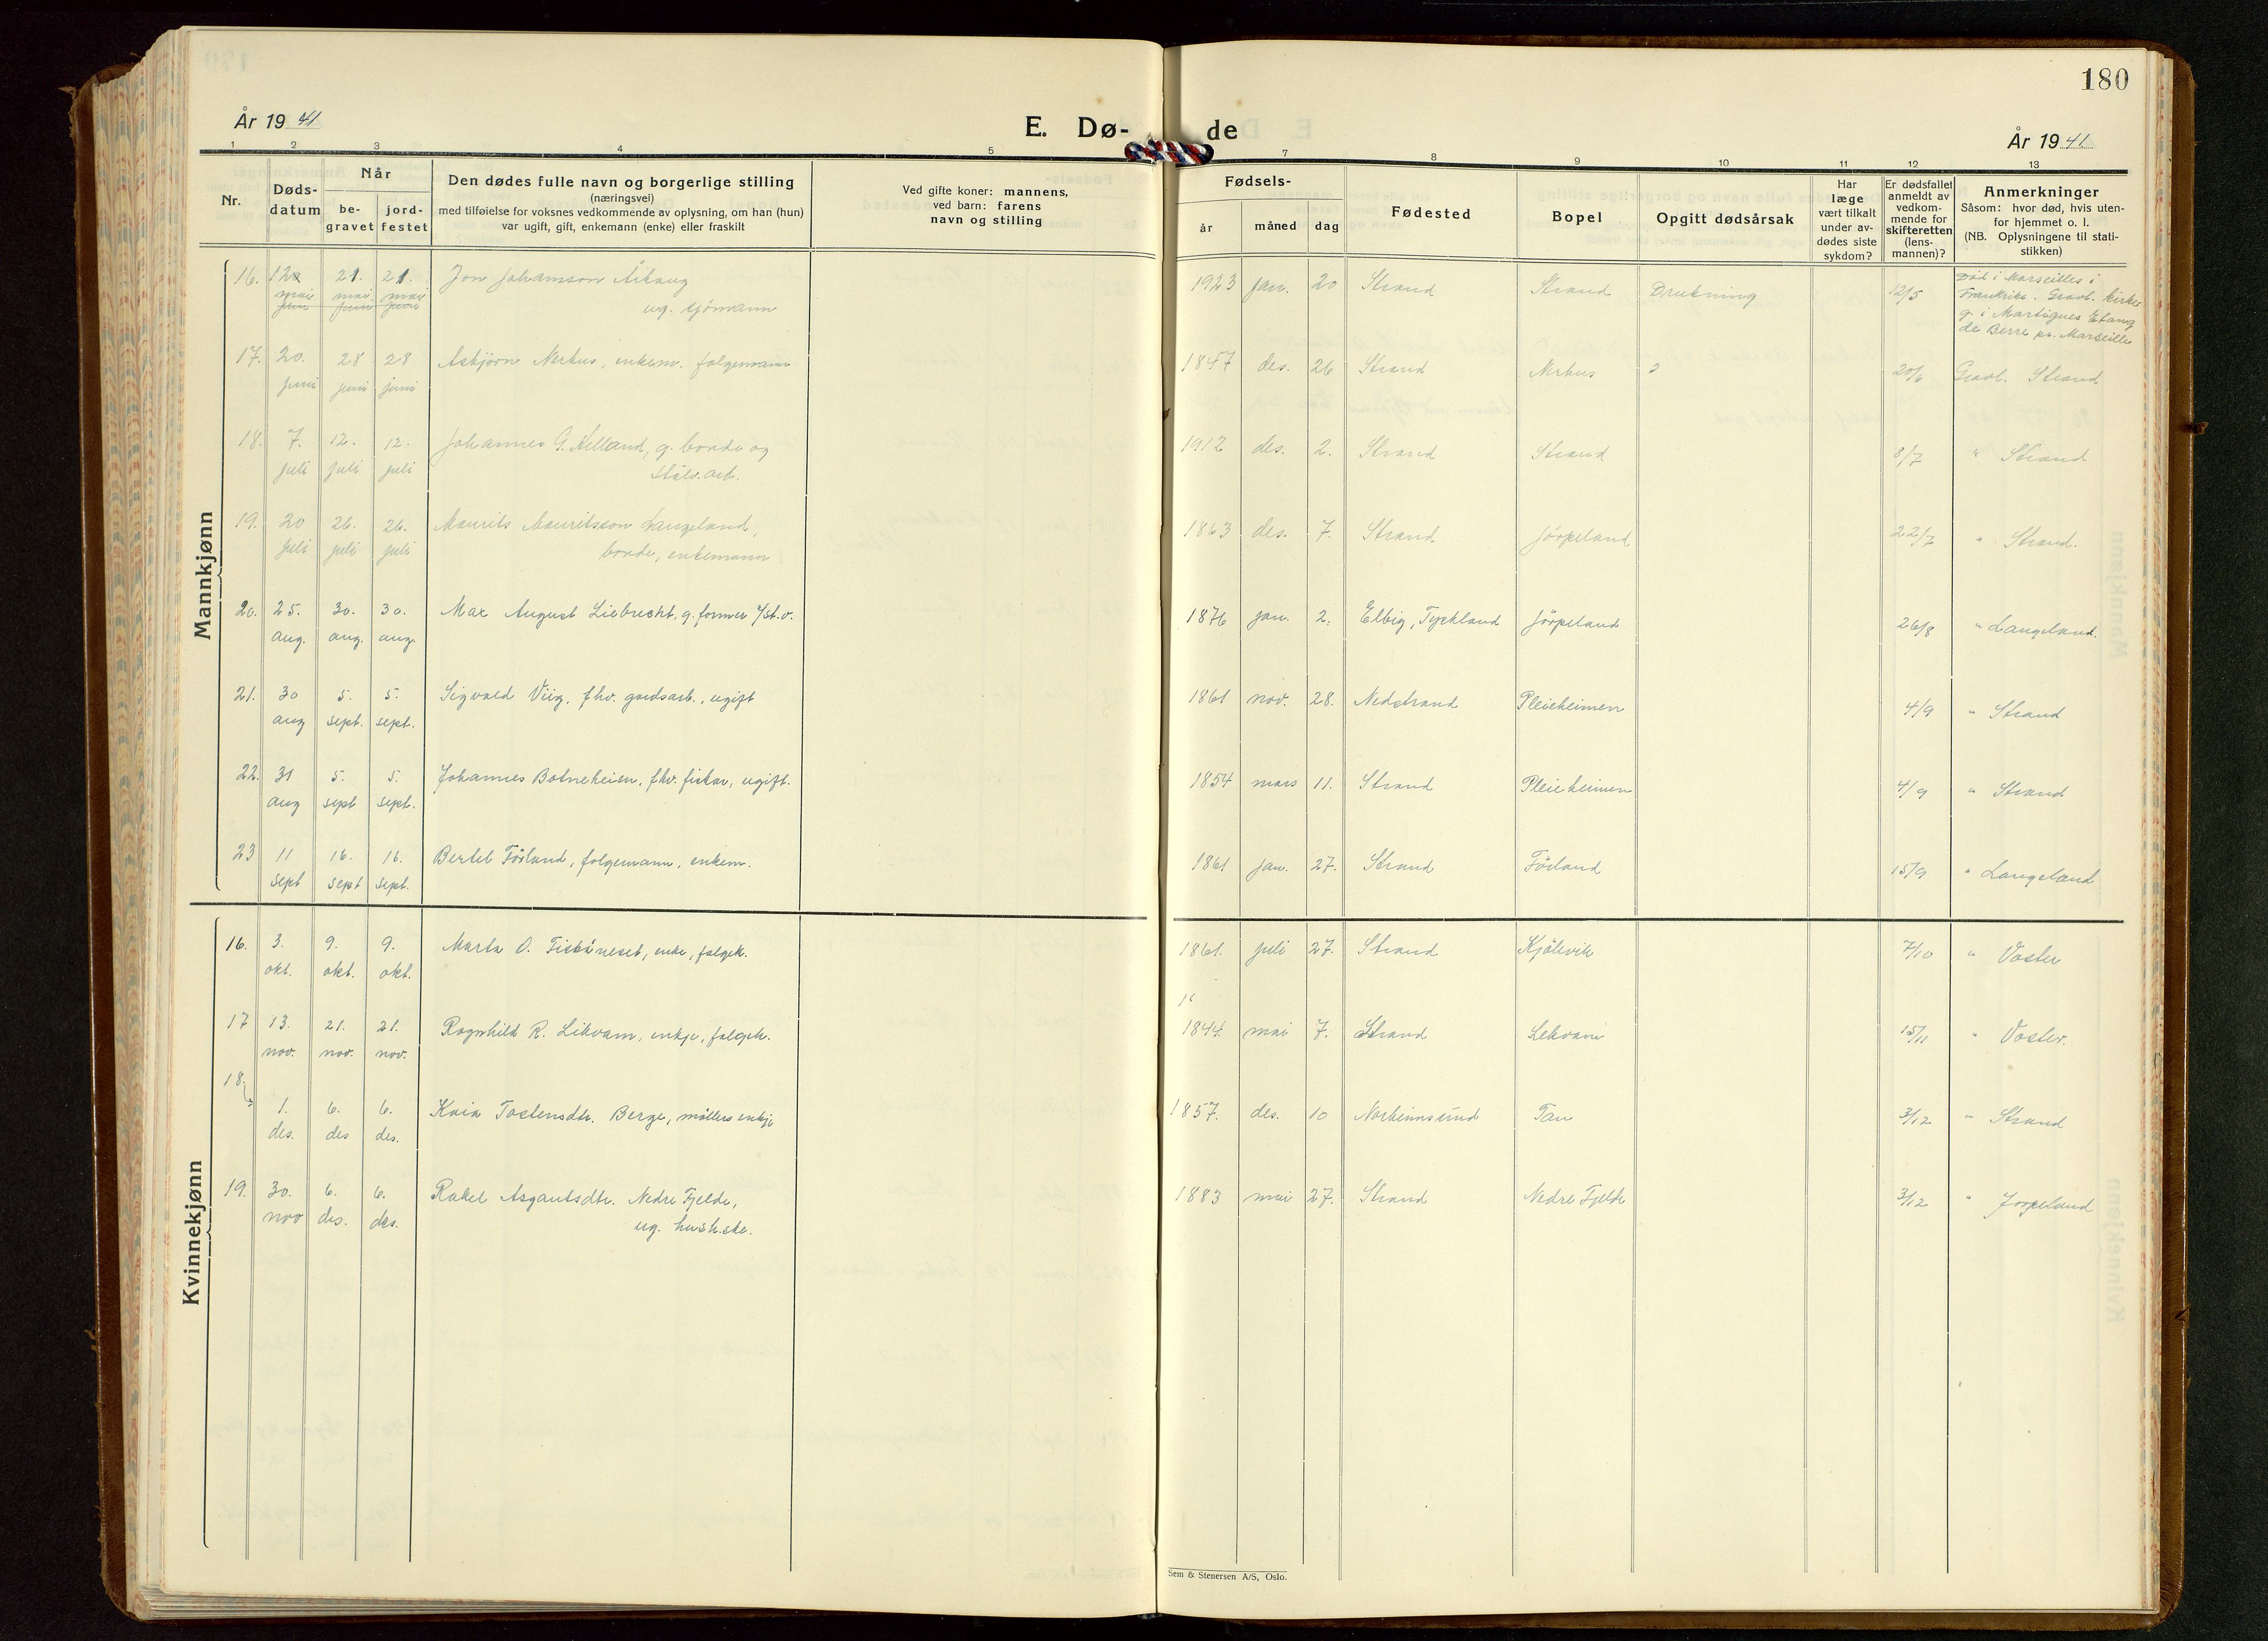 180
År 19 41
E. Dø-
de
År 19 41
1 2 3 4 5 7 8 9 10 11 12 13
Nr.
Døds-
datum
Når
be-
gravet
jord-
festet
Den dødes fulle navn og borgerlige stilling
(næringsvei)
med tilføielse for voksnes vedkommende av oplysning, om han (hun)
var ugift, gift, enkemann (enke) eller fraskilt
Ved gifte koner: mannens,
ved barn: farens
navn og stilling
Fødsels-
år måned dag
Fødested
Bopel
Opgitt dødsårsak
Har
læge
vært tilkalt
under av-
dødes siste
sykdom?
Er dødsfallet
anmeldt av
vedkom-
mende for
skifteretten
(lens-
mannen)?
Anmerkninger
Såsom: hvor død, hvis uten-
for hjemmet o. l.
(NB. Oplysningene til stati-
stikken)
Mannkjønn
16. 12 21. 21. Jon Johansson 1923 jan. 20 Strand Strand Drukning 12/5 Død i Marseilles i
mai mai mai ug. sjømann Frankrike. Gravl. kirke
juni juni juni g. i Martigues Etang
de Berre pr. Marseille
17. 20. 28 28 Asbjørn Nerhus, enkem. folgemann 1847 des. 26 Strand Nerhus ? 20/6 Gravl. Strand
juni juni juni
18. 7. 12. 12. Johannes G. Helland, g. bonde og 1912 des. 2. Strand Strand 8/7 " Strand
juli juli juli Stålv. arb.
19. 20 26. 26. Maurits Mauritsson Langeland, 1863 des. 7. Strand Jörpeland 22/7 " Strand.
juli juli juli bonde, enkemann
20. 25. 30. 30. Max August Liebrecht, g. former v/st.v. 1876 jan. 2. Elbig, Tyskland Jörpeland 26/8 " Langeland.
aug. aug. aug.
21. 30 5. 5. Sigvald Viig, fhv. gardsarb., ugift 1861 nov. 28. Nedstrand Pleieheimen 4/9 " Strand
aug sept. sept.
22. 31 5. 5. Johannes Botneheien, fhv. fisker, ugift. 1854 mars 11. Strand Pleieheimen 4/9 " Strand
aug sept sept.
23 11 16. 16. Bertel Förland, folgemann, enkem. 1861 jan. 27. Strand Förland 15/9 " Langeland
sept sept sept.
Kvinnekjønn
16. 3. 9. 9. Marta O. Fiskåneset, enke, folgek. 1861. juli 27. Strand Kjölevik 7/10 " Voster
okt. okt. okt.
17 13. 21. 21. Ragnhild R. Lekvam, enkje, folgek. 1844. mai 7. Strand Lekvam 15/11 " Voster.
nov. nov. nov.
18. 1. 6. 6. Kaia Tostensdtr. Berge, möllers enkje 1857. des. 10 Norheimsund Tau 3/12 " Strand
des. des des.
19. 30. 6. 6. Rakel Asgautsdtr. Nedre Fjelde, 1883 mai 27. Strand Nedre Fjelde 3/12 " Jorpeland
nov des. des. ug. hush.ske.
Sem & Stenersen A/S, Oslo.